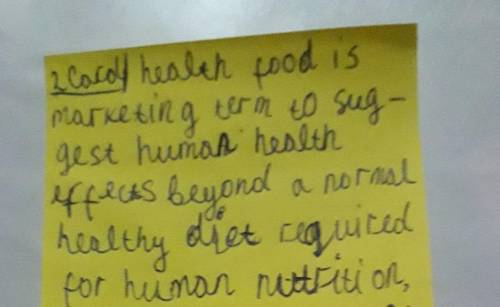 2 Card/ health food is
marketing term to sug-
gest human health
effects beyond a normal
healthy diet required
for human nutrition,